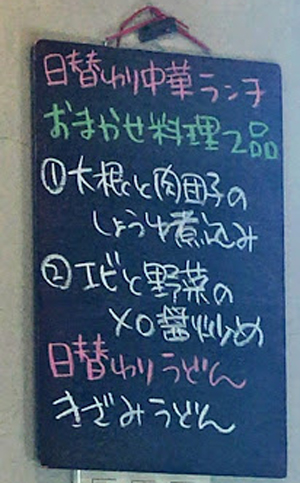 日替わり中華ランチ
おまかせ料理2品
①大根と肉団子の
しょうゆ煮込み
②エビと野菜の
XO醤炒め
日替わりうどん
きざみうどん